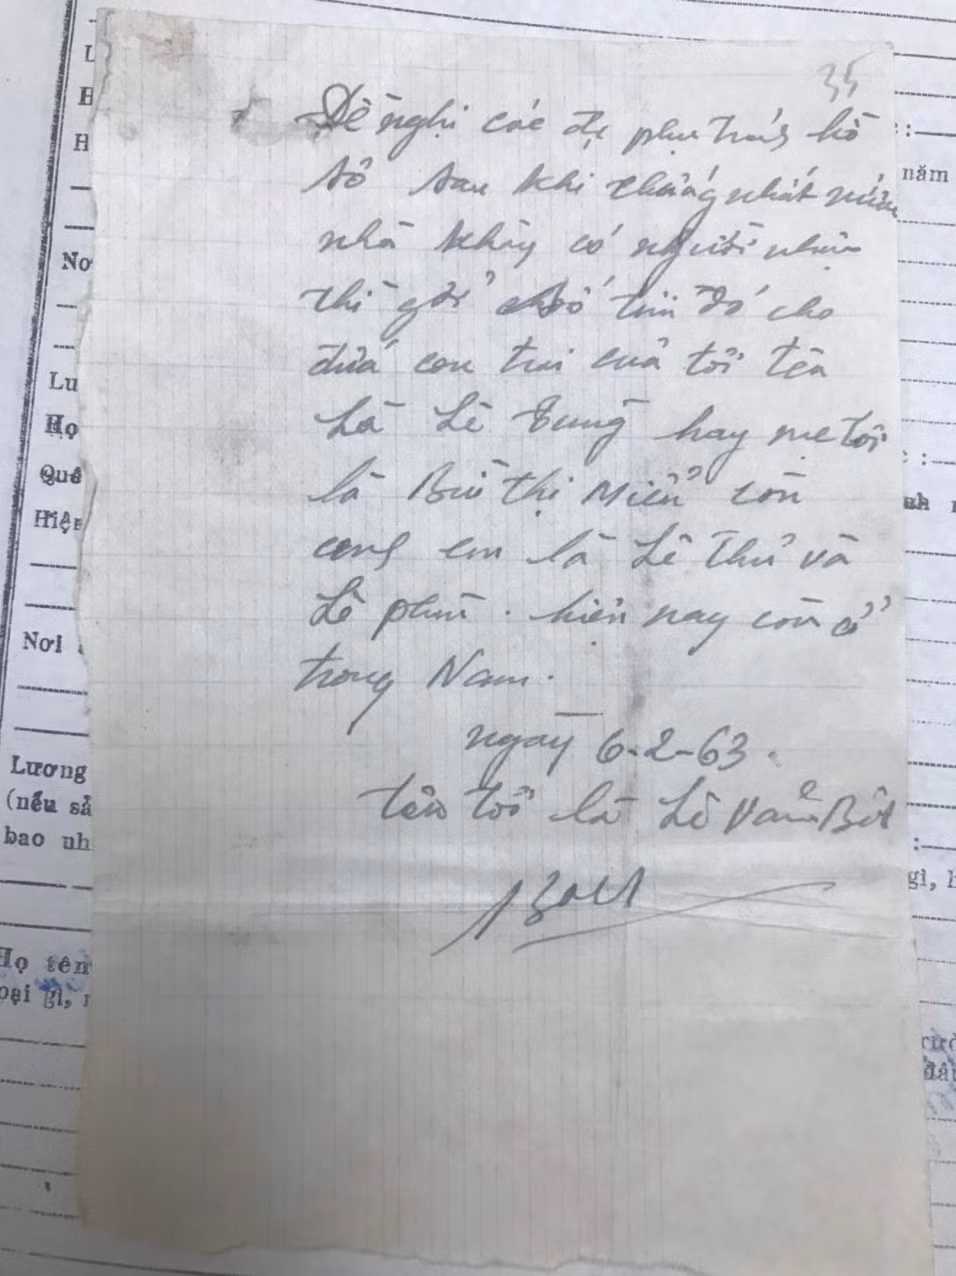 35
Đề nghị các đc phụ trách hồ
sô sau khi thống nhất nước
nhà không có người nhận
thì gởi số tiền đó cho
đứa con trai của tôi tên
là Lê Trung hay mẹ tôi
là Bùi thị Miển còn
cong em là Lê Thử và
Lê phun . hiện nay còn ở
trong Nam.
ngày 6-2-63.
tên tôi là Lê Văn Bốt
năm
Nơ
Lu
Họ
Quê
Hiện
Nơi
Lương
(nếu sả
bao nh
gì, h
Họ tên
oại gì,